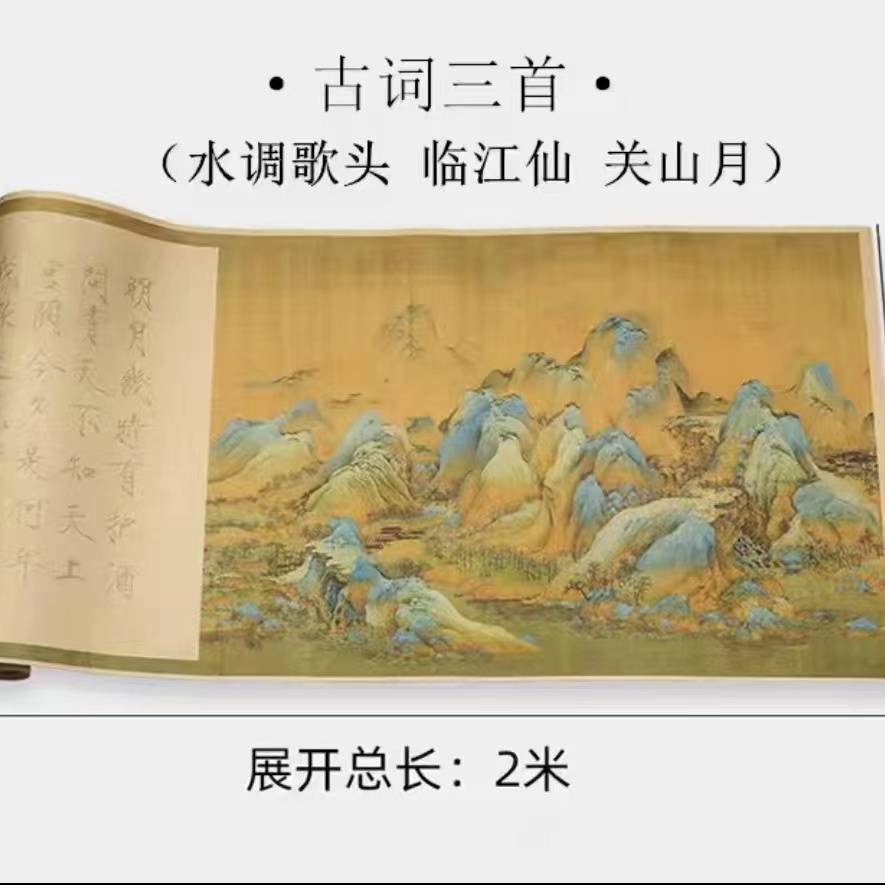 ·古词三首·
（水调歌头 临江仙 关山月）
明月幾時有把酒
問青天不知天上
宮闕今夕是何年
展开总长：2米